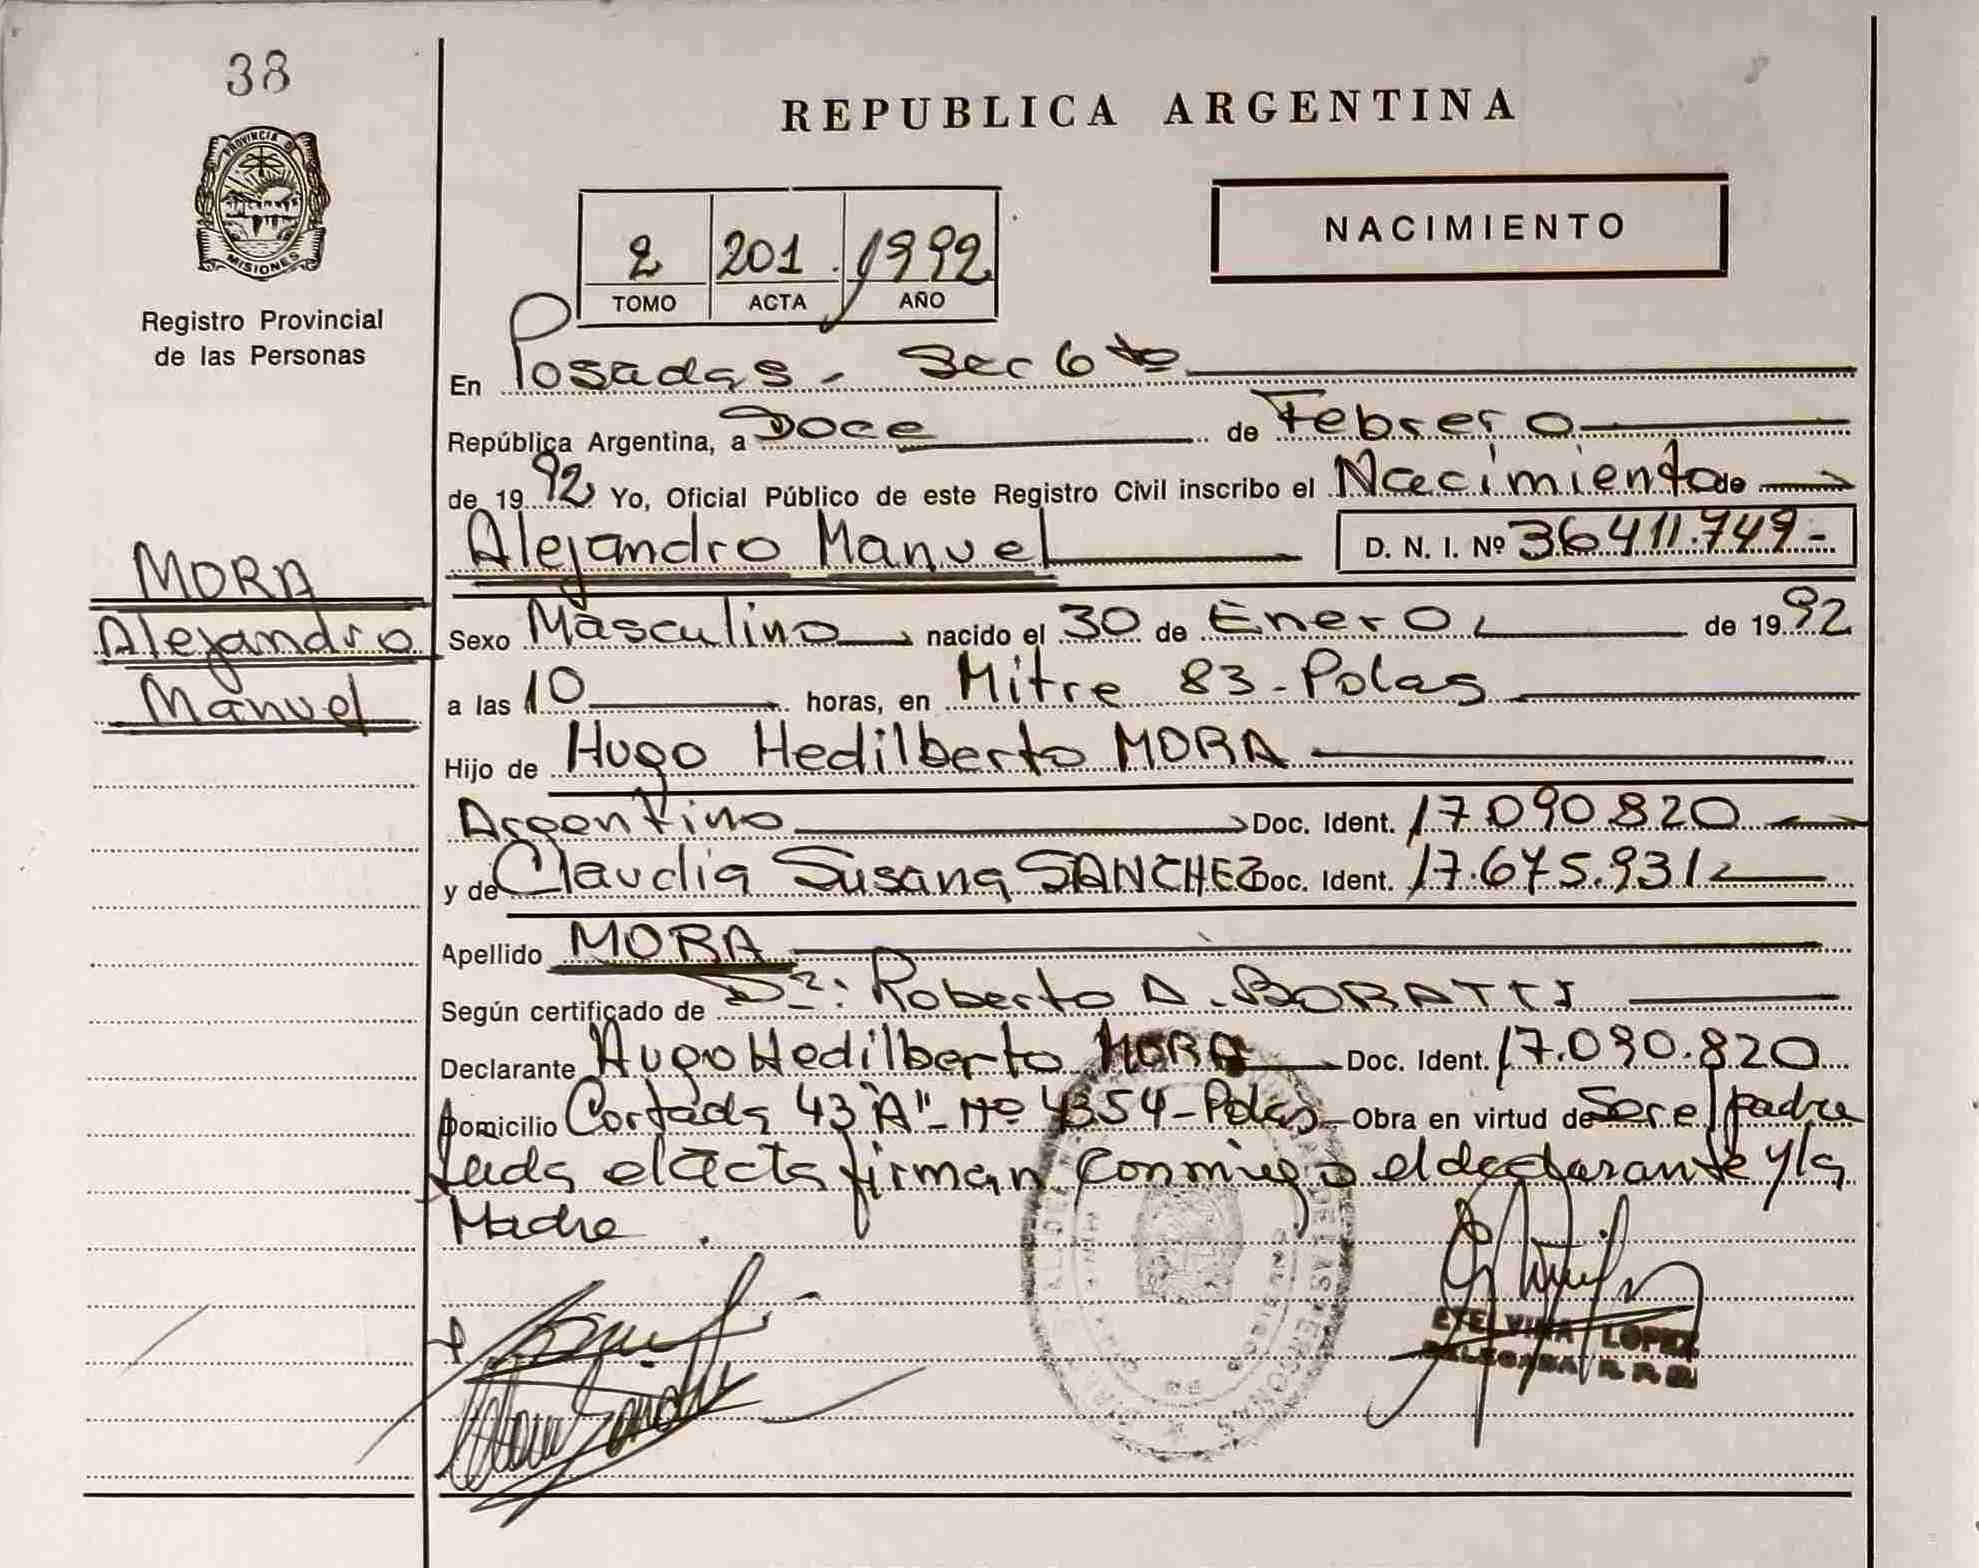 38
REPUBLICA ARGENTINA
PROVINCIA DE
MISIONES
Registro Provincial
de las Personas
NACIMIENTO
2 201 1992
TOMO ACTA AÑO
En Posadas - Sec 6to
República Argentina, a Doce de Febrero
de 1992 Yo, Oficial Público de este Registro Civil inscribo el Nacimiento de
Alejandro Manuel D. N. I. Nº 36.411.749-
MORA
Alejandro
Manuel
Sexo Masculino nacido el 30 de Enero de 1992
a las 10 horas, en Mitre 83 - Polas
Hijo de Hugo Hedilberto MORA
Argentino Doc. Ident. 17.090.820
y de Claudia Susana SANCHEZ Doc. Ident. 17.675.931
Apellido MORA
Según certificado de Dr: Roberto A. BORATTI
Declarante Hugo Hedilberto MORA Doc. Ident. 17.090.820
Domicilio Cortada 43 "A" - Nº 4354 - Polas Obra en virtud de Ser el padre
Leida el acta firman conmigo el declarante y la
Madre.
ETELVINA LOPEZ
DELEGADA R. P. P.